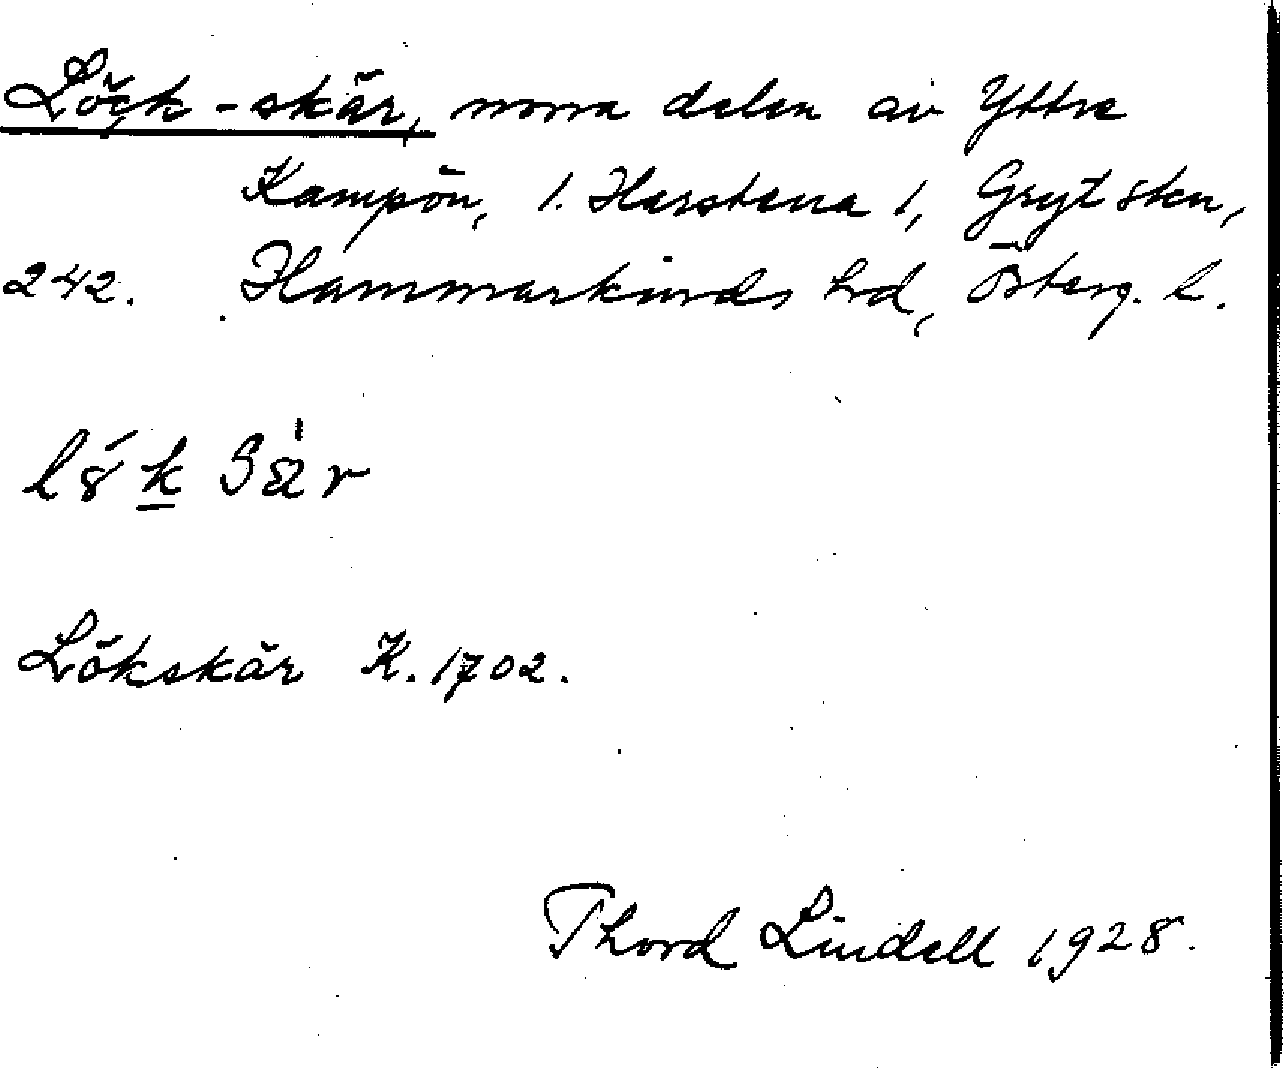 Löck-skär, norra delen av Yttre
Kampön, 1. Harstena 1, Gryt skn,
242. Hammarkinds hd, Österg. l.
Lökskär K. 1702.
Thord Lindell 1928.